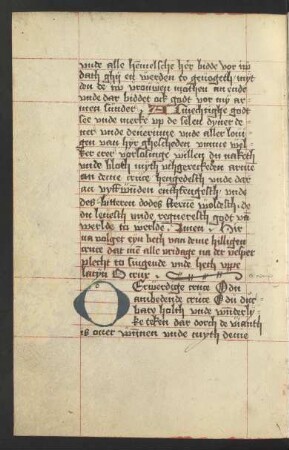 vnde alle hemelsche her bidde vor vns
dath ghij en werden to
den vrouwen ane ende
vnde dar biddet ock godt vor my ar
men sunder. Almechtighe godt
see vnde merke vp de selen dyner de
ner vnde denerinne vnde aller loui
gen van hyr ghescheden vmme wel
ker erer vorlosinge willen du naketh
vnde bloth myth vthgereckeden armen
an deme cruce hengedesth vnde dar
an vyff wunden entfengesth vnde
des bitteren dodes steruen woldesth. de
du leuesth vnde regneresth godt van
werlde to werlde. Amen. Hir
na volget eyn beth van deme hilligen
cruce dat men alle vridage na der vesper
plecht to singende vnde heth vppe
latyn O crux.
O Erwerdige cruce O du
anbedende cruce O du dure
bare holth vnde wunderly
ke teken dar dorch de vianth
is ouer wunnen vnde myth deme